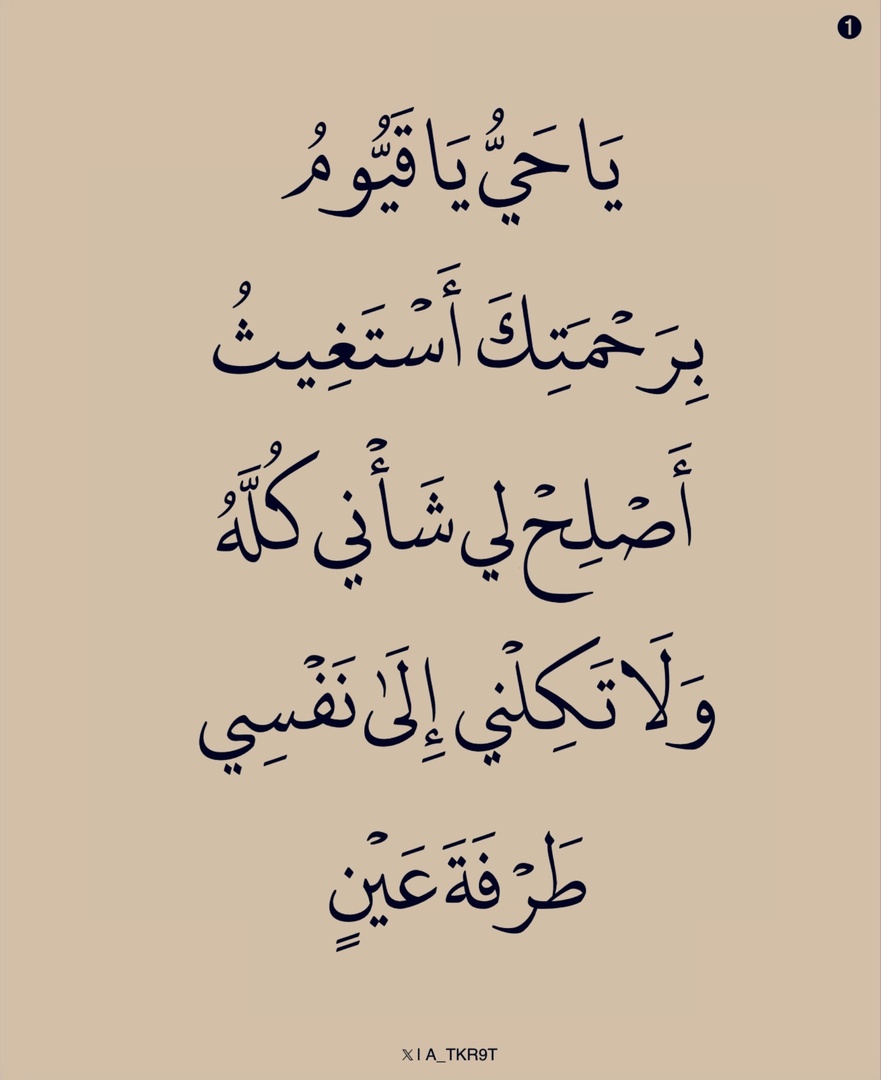 ❶
يَا حَيُّ يَا قَيُّومُ
بِرَحْمَتِكَ أَسْتَغِيثُ
أَصْلِحْ لي شَأْني كُلَّهُ
وَلَا تَكِلْني إِلَىٰ نَفْسِي
طَرْفَةَ عَيْنٍ
𝕏 | A_TKR9T